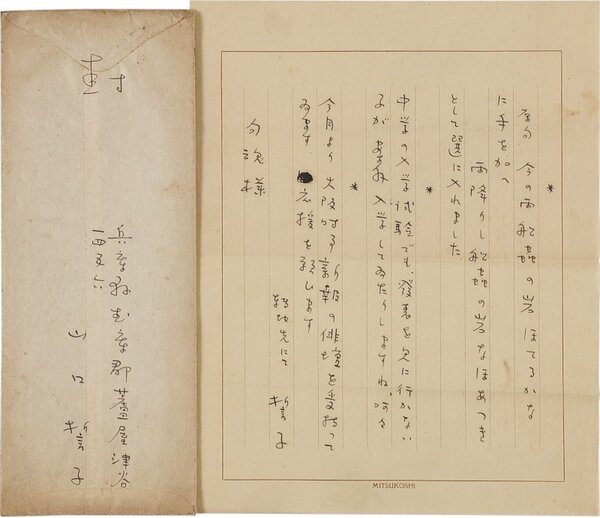 *
原句 今の雨船蟲の岩ほてるかな
に手を加へ
雨降りし船蟲の岩なほあつき
として選に入れました
*
中学の入学試験でも、發表を見に行かない
子が 入学してゐたりしますね、呵々
*
今月より大阪時事新報の俳壇を受持って
ゐます。 応援を願します
轉地先にて 誓子
句魂様
MITSUKOSHI
封
兵庫縣武庫郡蘆屋津谷
一四五六
山口誓子